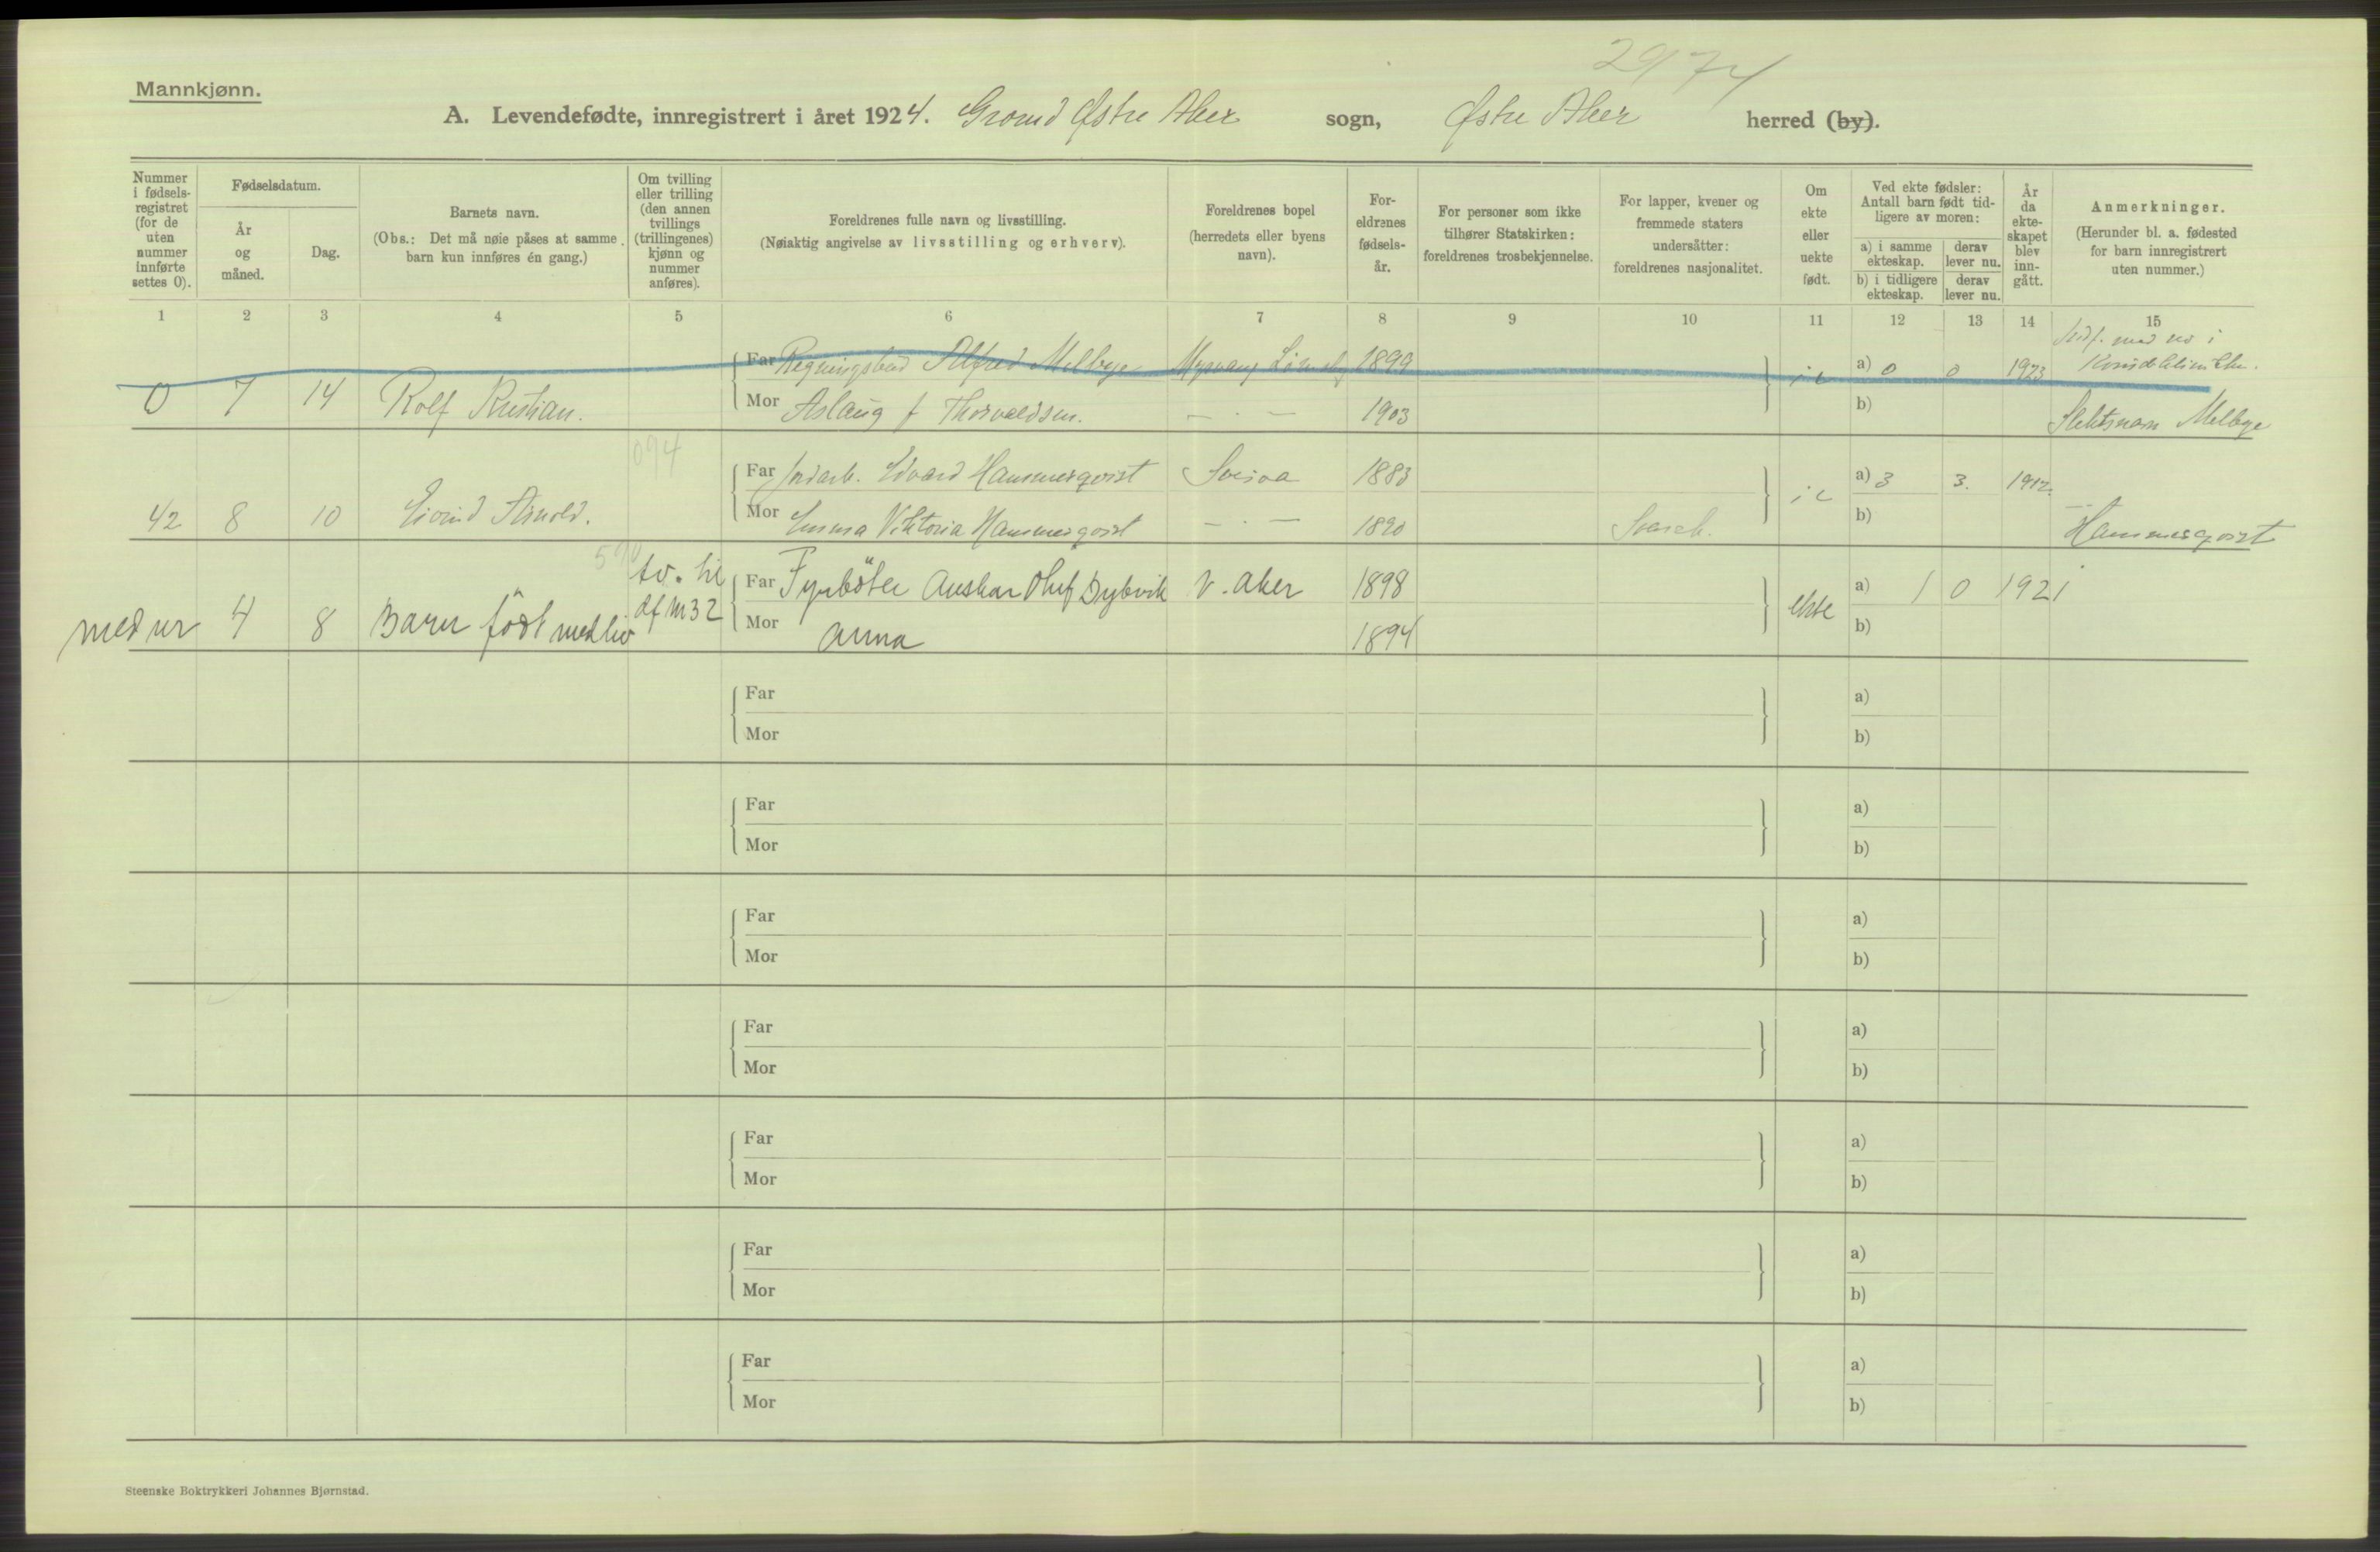 2974
Mannkjønn.
A. Levendefødte, innregistrert i året 1924. Grorud Østre Aker sogn, Østre Aker herred (by).
Nummer i fødselsregistret (for de uten nummer innførte settes 0).
Fødselsdatum.
År og måned.
Dag.
Barnets navn.
(Obs.: Det må nøie påses at samme barn kun innføres én gang.)
Om tvilling eller trilling (den annen tvillings (trillingenes) kjønn og nummer anføres).
Foreldrenes fulle navn og livsstilling.
(Nøiaktig angivelse av livsstilling og erhverv).
Foreldrenes bopel (herredets eller byens navn).
Foreldrenes fødselsår.
For personer som ikke tilhører Statskirken: foreldrenes trosbekjennelse.
For lapper, kvener og fremmede staters undersåtter: foreldrenes nasjonalitet.
Om ekte eller uekte født.
Ved ekte fødsler: Antall barn født tidligere av moren:
a) i samme ekteskap.
derav lever nu.
b) i tidligere ekteskap.
derav lever nu.
År da ekteskapet blev inngått.
Anmerkninger.
(Herunder bl. a. fødested for barn innregistrert uten nummer.)
1 2 3 4 5 6 7 8 9 10 11 12 13 14 15
Far Regningsbud Alfred Melbye 1899 a) 0 0 1923
0 7 14 Rolf Kristian. Mor Aslaug f Thorvaldsen. — · — 1903 b) Slektsnavn Melbye
094
Far Jndarb. Edvard Hammerqvist 1883 a) 3 3. 1912.
42 8 10 Eivind Arnold. Mor Emma Viktoria Hammerqvist — · — 1890 Svensk. b) Hammerqvist
tv. til df m 32
Far Fyrböter Anskar Oluf Dybvik V. Aker 1898 ekte a) 1 0 1921
med nr 4 8 Barn född med liv Mor Anna 1894 b)
Far a)
Mor b)
Far a)
Mor b)
Far a)
Mor b)
Far a)
Mor b)
Far a)
Mor b)
Far a)
Mor b)
Far a)
Mor b)
Steenske Boktrykkeri Johannes Bjørnstad.